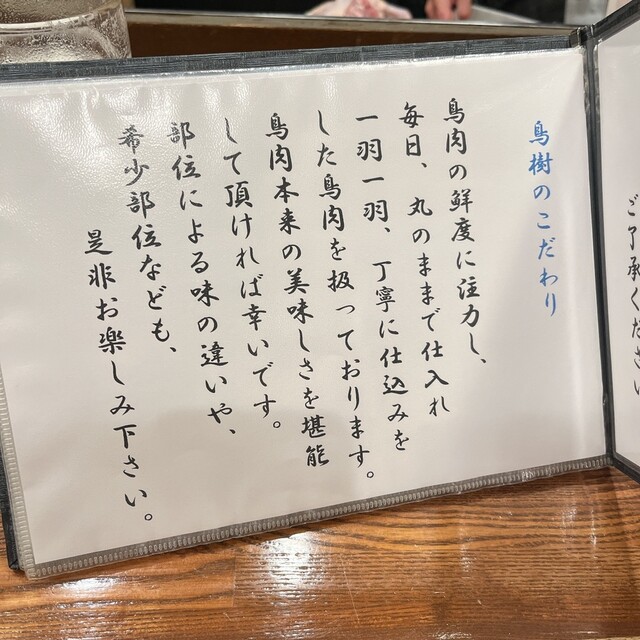 鳥樹のこだわり
鳥肉の鮮度に注力し、
毎日、丸のままで仕入れ
一羽一羽、丁寧に仕込みを
した鳥肉を扱っております。
鳥肉本来の美味しさを堪能
して頂ければ幸いです。
部位による味の違いや、
希少部位なども、
是非お楽しみ下さい。
ご了承ください